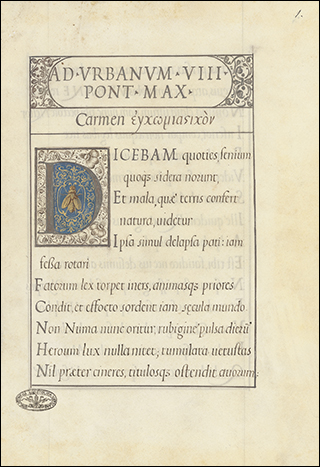 1.
AD·VRBANVM·VIII·
PONT·MAX·
Carmen ἐγκωμιαϛικὸν
DICEBAM quoties senium
quoqꝫ sidera norunt,
Et mala, quæ terris confert
natura, uidetur
Ipsa simul delapsa pati: iam
fessa rotari
Fatorum lex torpet iners, animasqꝫ priores
Condit, et effœto sordent iam sęcula mundo
Non Numa nunc oritur, rubigine pulsa dierū
Heroum lux nulla nitet; tumulata uetustas
Nil præter cineres, titulosqꝫ ostendit auorum: